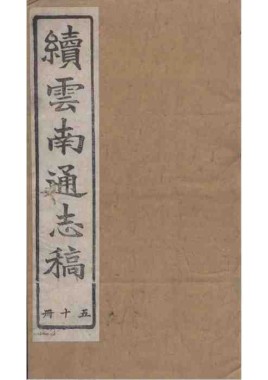 續雲南通志稿
五十冊